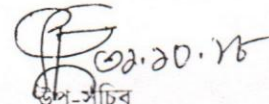 ৩১.১০.১৮
উপ-সচিব